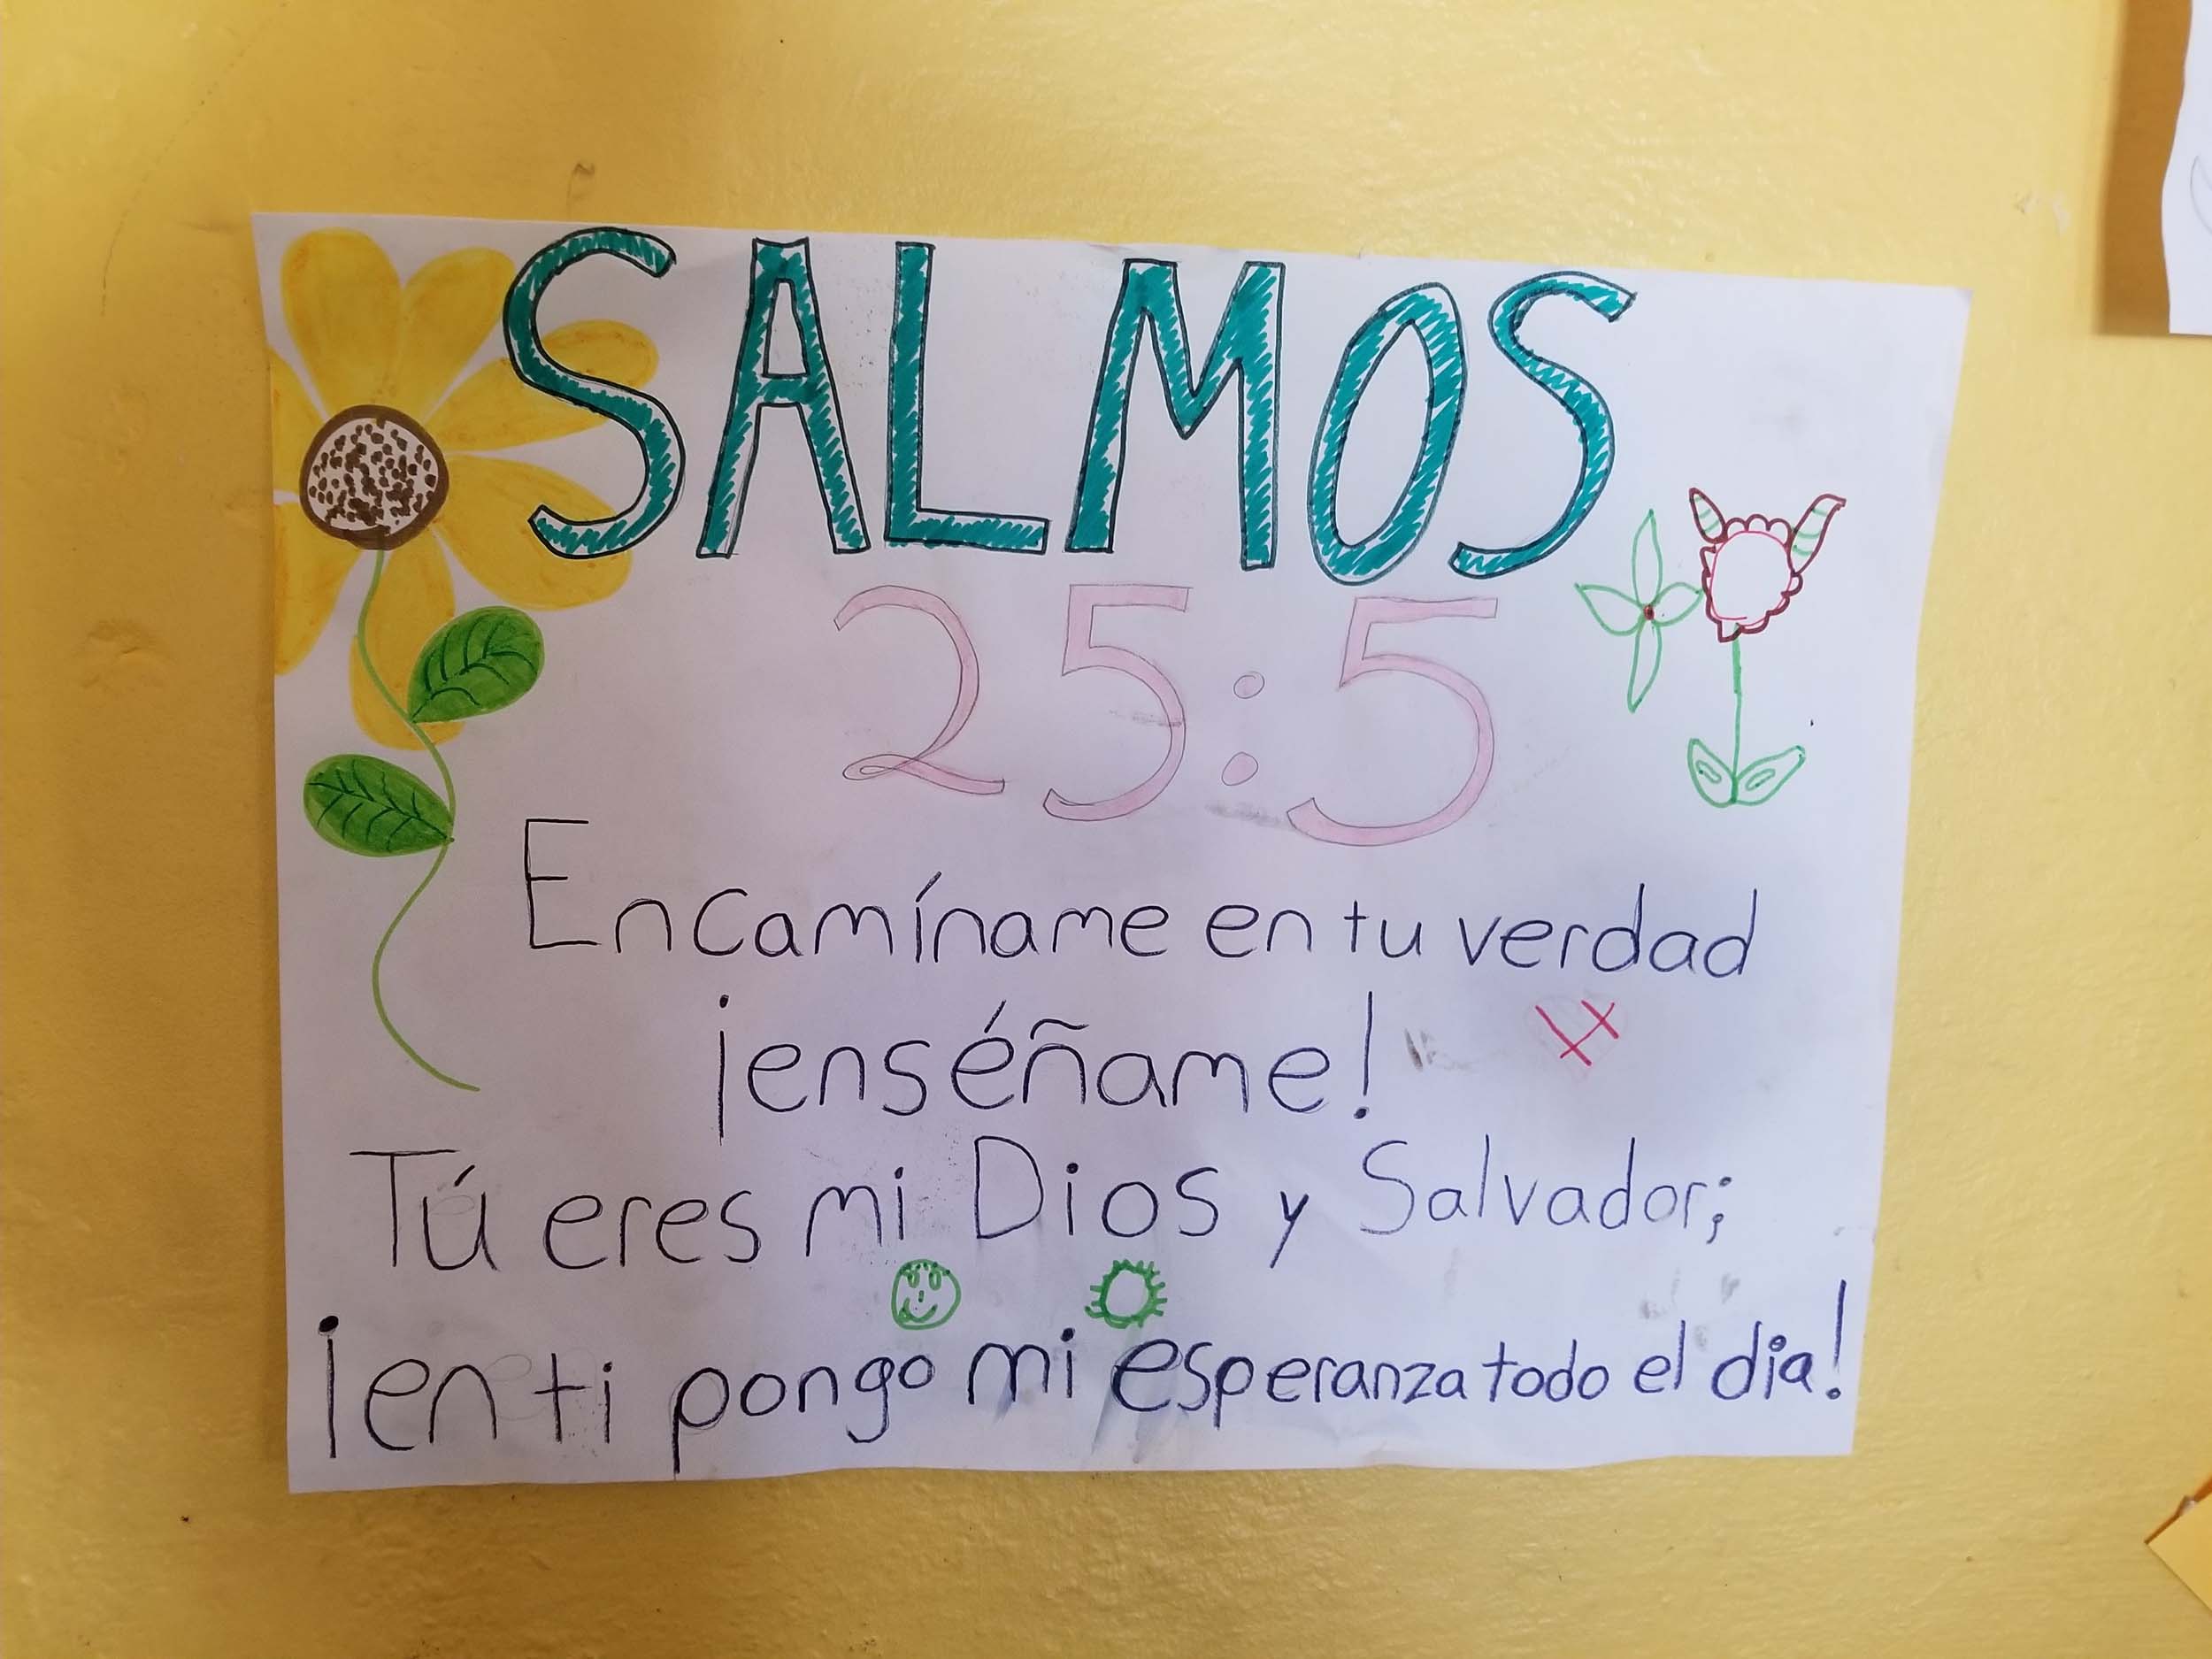 SALMOS
25:5
Encamíname en tu verdad
¡enséñame!
Tú eres mi Dios y Salvador;
¡en ti pongo mi esperanza todo el dia!